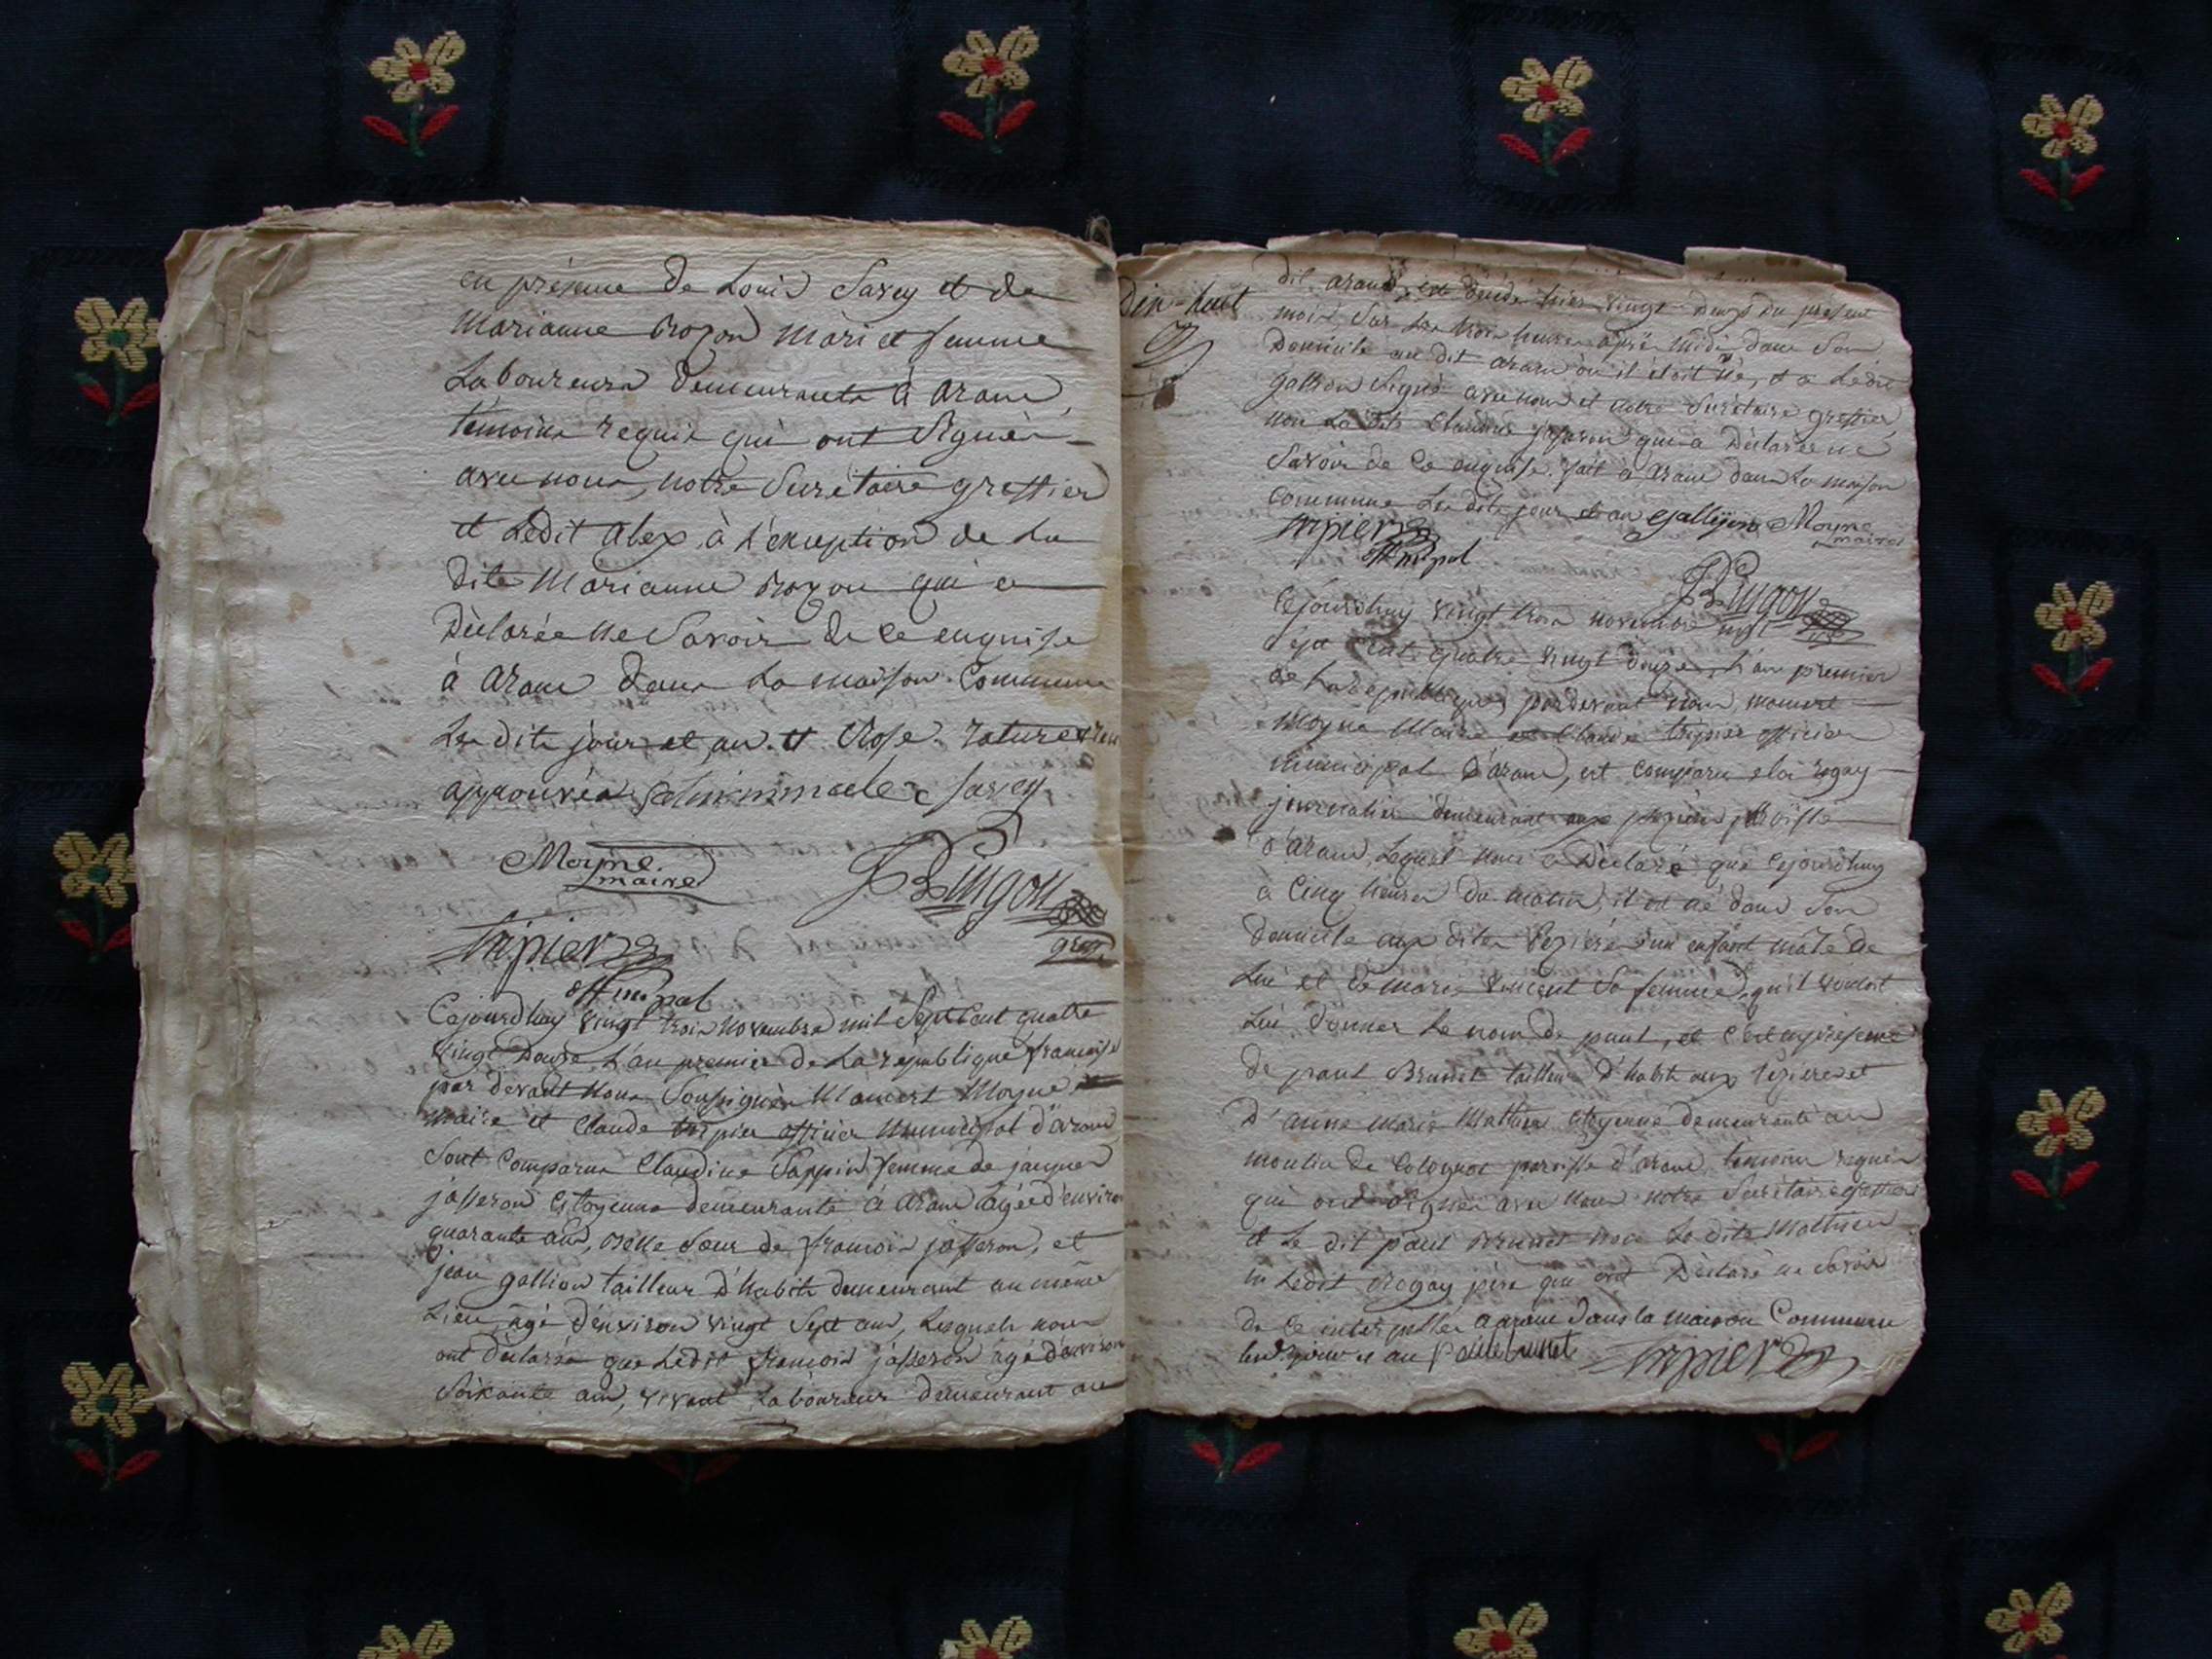 en présence de Louis Savey et de
Marianne Brozon Mari et femme
Laboureurs demeurants à Arane,
témoins requis qui ont Signés
avec nous, notre Secrétaire greffier
et Ledit alex, à L'éxception de La
dite Marianne Brozon qui a
Déclarée ne Savoir de ce enquise
à Arane dans La maison Commune
Les dits jour et an. et Rose. raturé
approuvés Savey
Moyne
maire
B Lingon
Tripier
off mpal
greff.
Cejourdhuy vingt trois novembre mil Sept Cent quatre
vingt Douze L'an premier de La république francoise
par devant Nous Soussignés Mamert Moyne
maire et Claude tripier officier Municipal d'arane
Sont Comparus Claudine Pappin femme de jacques
jasseron Citoyenne demeurante à Arane agée d'environ
quarante ans, Belle Sœur de francois jasseron, et
jean gallion tailleur d'habits demeurant au même
Lieu, agé d'environ vingt Sept ans, Lesquels nous
ont déclarés que Ledit francois jasseron agé d'environ
Soixante ans, vivant Laboureur demeurant au
Dix-huit
dit arane, est décédé hier vingt deux du présent
mois, Sur Les trois heures après Midi, dans Son
Domicile au dit arane où il étoit né, et a Ledit
gallion Signé avec nous et notre Secrétaire greffier,
non La dite Claudine qui a Déclarée ne
Savoir de Ce enquise. fait à Arane dans La maison
Commune Les dits jour et an gallion Moyne
maire
Tripier
off mpal
B Lingon
Cejourdhuy vingt trois novembre mil
Sept Cent quatre vingt douze, L'an premier
de La république, pardevant nous, mamert
Moyne Maire et Claude tripier officier
municipal d'arane, est Comparu eloi rogay
journalier demeurant aux parroisse
d'Arane, Lequel nous a Déclaré que Cejourdhuy
à Cinq heures du matin, il est né dans Son
Domicile aux dites un enfant mâle de
Lui et de marie vincent Sa femme, qu'il vouloit
Lui donner Le nom de paul, et C'est en présence
de paul Brunet tailleur d'habits aux et
D'anne Marie Mathieu Citoyenne demeurante au
moulin de Colognat parroisse d'arane, temoins requis
qui ont Signés avec Nous notre Secrétaire greffier
et Le dit paul Brunet non La dite Mathieu
ni Ledit Rogay père qui ont Déclaré ne Savoir
de Ce interpellés a arane dans la maison Commune
lesd. jour et an Paule brunet Tripier